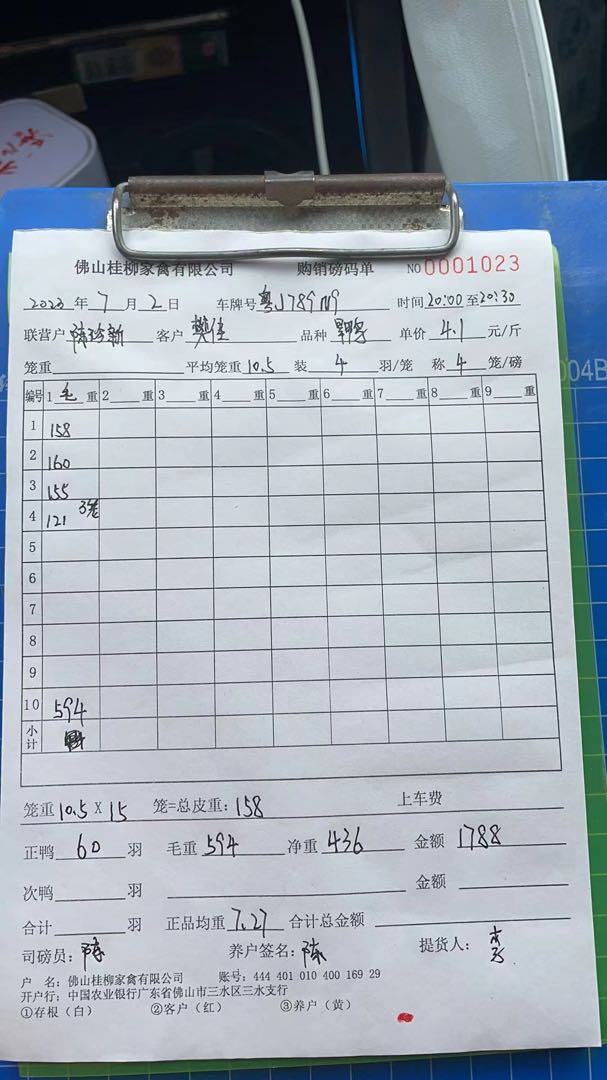 佛山桂柳家禽有限公司 购销磅码单 NO 0001023
2023 年 7 月 2 日 车牌号 粤J789M9 时间 20:00 至 20:30
联营户 陈珍新 客户 樊佳 品种 单价 4.1 元/斤
笼重 平均笼重 10.5 装 4 羽/笼 称 4 笼/磅
编号 1 毛 重 2 重 3 重 4 重 5 重 6 重 7 重 8 重 9 重
1 158
2 160
3 155
4 121 3笼
5
6
7
8
9
10 594
小计
笼重 10.5 X 15 笼=总皮重: 158 上车费
正鸭 60 羽 毛重 594 净重 436 金额 1788
次鸭 羽 金额
合计 羽 正品均重 7.27 合计总金额
司磅员: 陈 养户签名: 陈 提货人:
户 名: 佛山桂柳家禽有限公司 账号: 444 401 010 400 169 29
开户行: 中国农业银行广东省佛山市三水区三水支行
①存根（白） ②客户（红） ③养户（黄）